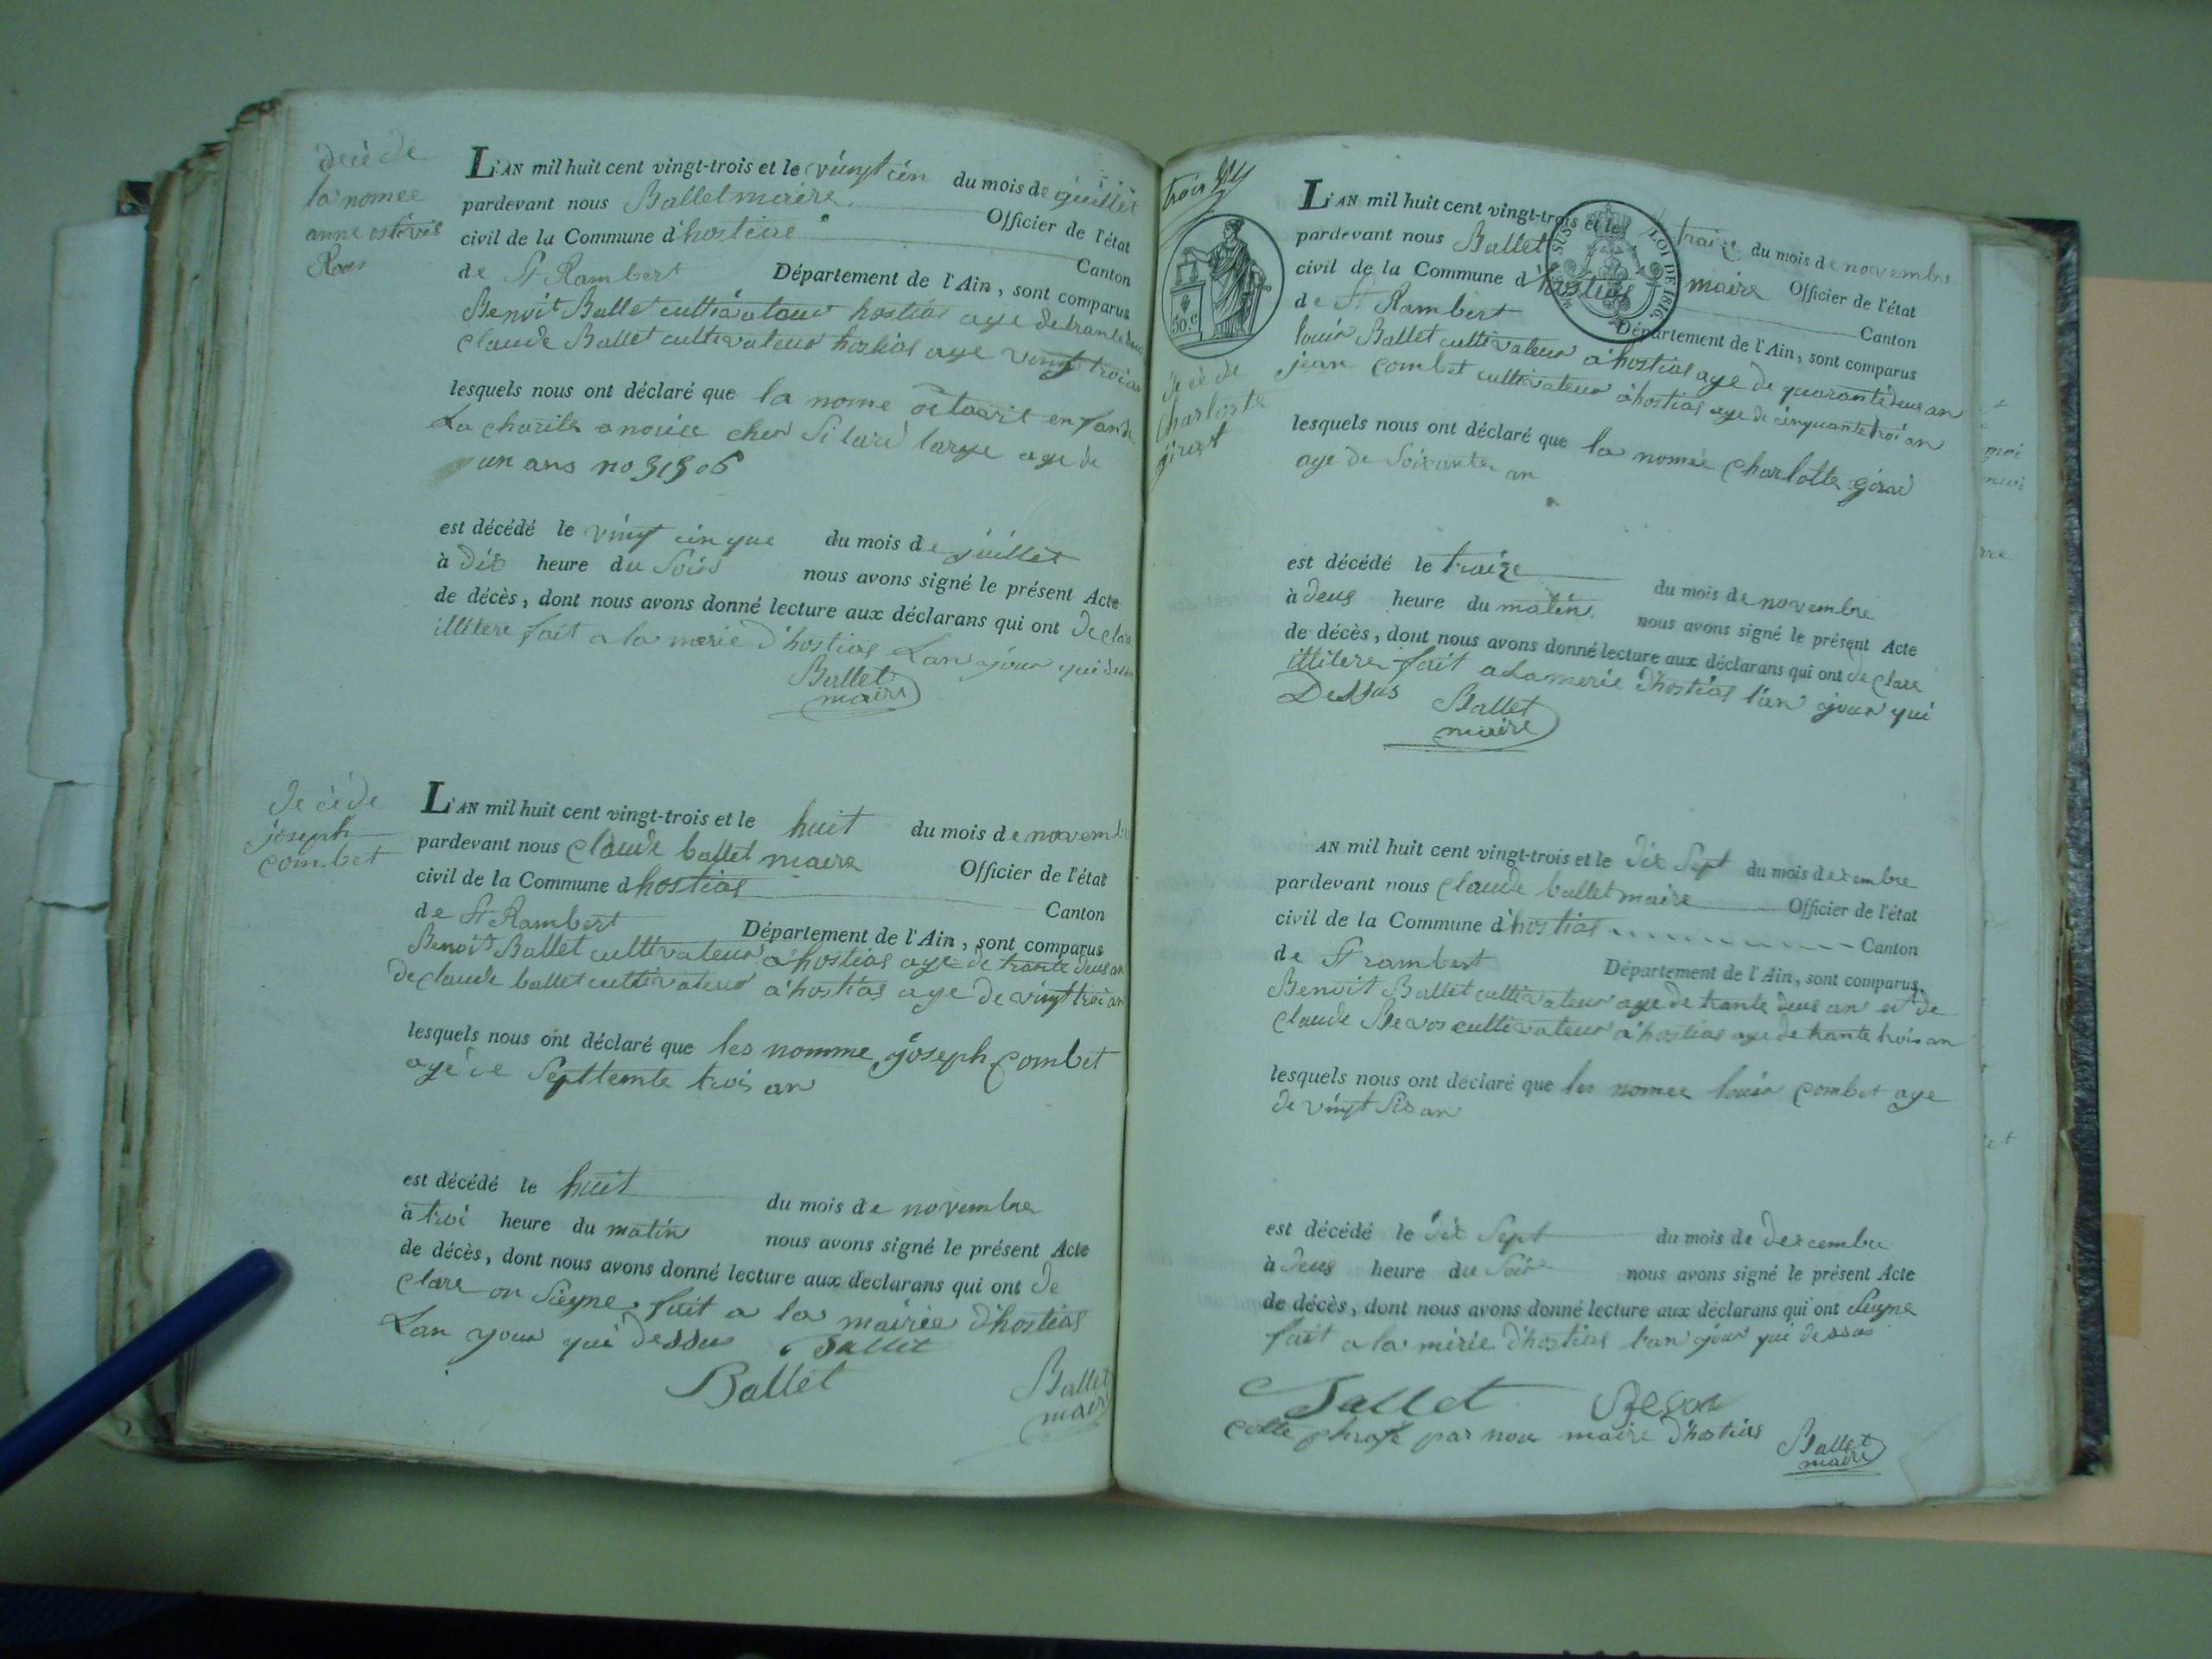 decede
la nomee
anne
L'AN mil huit cent vingt-trois et le vingt cin du mois de juillet
pardevant nous Ballet maire Officier de l'état
civil de la Commune d'hostias Canton
de St Rambert Département de l'Ain, sont comparus
Benoit Ballet cultivateur hostias aye de trante deus
Claude Ballet cultivateur hostias aye vingt troi an
lesquels nous ont déclaré que la nome en fan de
La charite a nosiee ches large aye de
un ans no
est décédé le vingt cinque du mois de juillet
à dis heure du Soir nous avons signé le présent Acte
de décès, dont nous avons donné lecture aux déclarans qui ont de clare
illitere fait a la merie d'hostias Lan jour qui dessu
Ballet
maire
de cede
joseph
combet
L'AN mil huit cent vingt-trois et le huit du mois de novembre
pardevant nous claude ballet maire Officier de l'état
civil de la Commune d hostias Canton
de St Rambert Département de l'Ain, sont comparus
Benoit Ballet cultivateur a hostias aye de trante deus an
de claude ballet cultivateur a hostias aye de vingt troi an
lesquels nous ont déclaré que les nomme joseph combet
aye de Septtente trois an
est décédé le huit du mois de novembre
à troi heure du matin nous avons signé le présent Acte
de décès, dont nous avons donné lecture aux déclarans qui ont de
clare on Siegne fait a la mairie d'hostias
Lan your qui dessu Ballet
Ballet
Ballet
maire
trois
30.c
decede
Charlotte
L'AN mil huit cent vingt-trois et le traize du mois de novembre
pardevant nous Ballet maire Officier de l'état
civil de la Commune d'hostias Canton
de St Rambert Département de l'Ain, sont comparus
LOI DE 1816.
louis Ballet cultivateur a hostias aye de quarante deus an
jean combet cultivateur a hostias aye de cinquante troi an
lesquels nous ont déclaré que la nomee charlotte
aye de Soixante an
est décédé le traize du mois de novembre
à deus heure du matin nous avons signé le présent Acte
de décès, dont nous avons donné lecture aux déclarans qui ont de clare
illitere fait a La merie d'hostias l'an jour qui
Dessus Ballet
maire
AN mil huit cent vingt-trois et le dix Sept du mois decembre
pardevant nous claude ballet maire Officier de l'état
civil de la Commune d'hostias Canton
de St rambert Département de l'Ain, sont comparus
Benoit Ballet cultivateur aye de trante deus an et de
claude cultivateur a hostias aye de trante trois an
lesquels nous ont déclaré que les nomee louis combet aye
de vingt Sis an
est décédé le dix Sept du mois de decembre
à deus heure du Soir nous avons signé le présent Acte
de décès, dont nous avons donné lecture aux déclarans qui ont Siegne
fait a la merie d'hostias l'an jour qui dessus
Ballet
cotte par nous maire d'hostias Ballet
maire